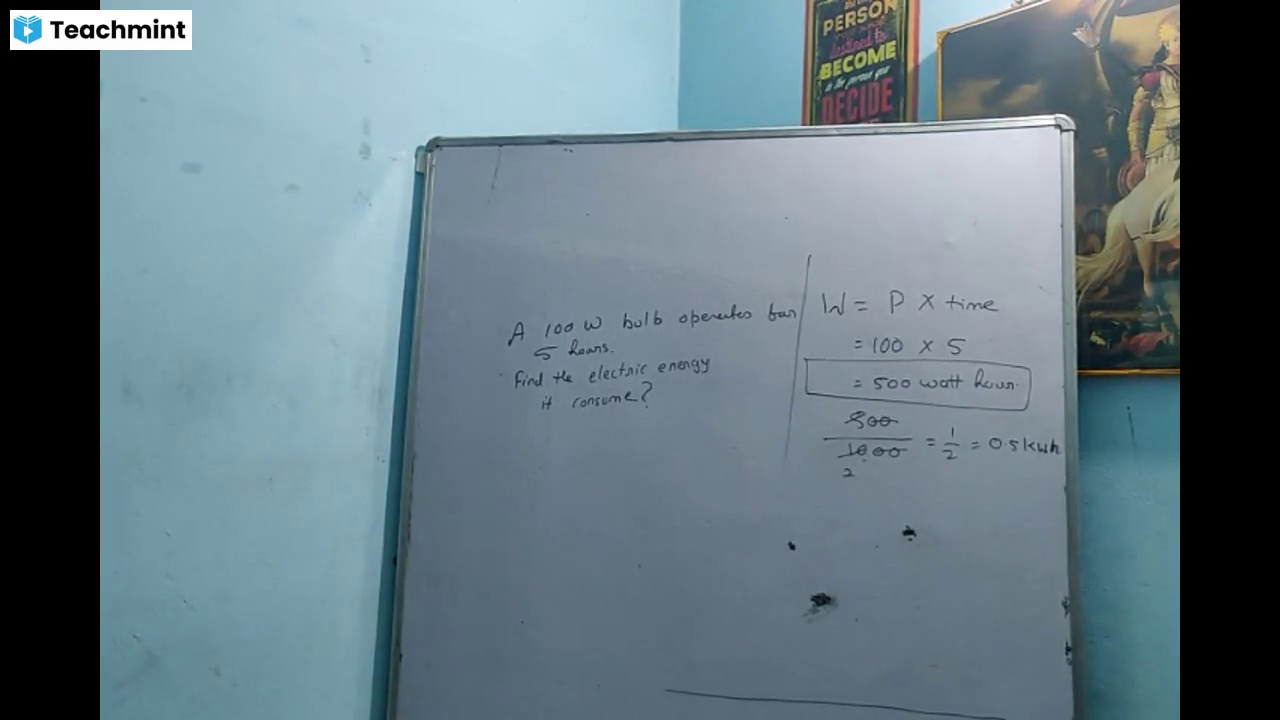 Teachmint
PERSON
destined to
BECOME
is the person you
DECIDE
A 100 W bulb operates for
5 hours.
Find the electric energy
it consume?
W = P X time
= 100 X 5
= 500 watt hour.
500
1000
= 1/2 = 0.5 kwh
2